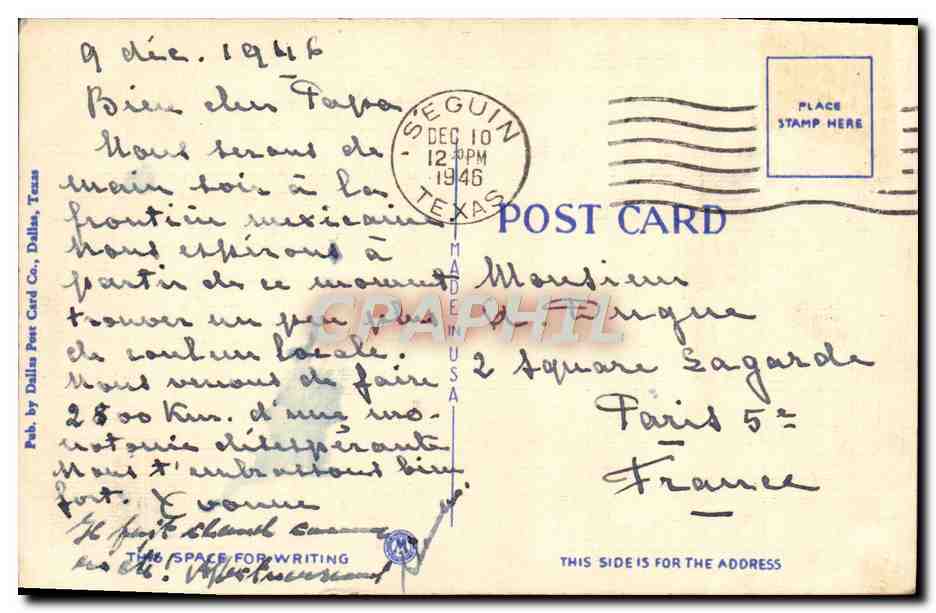 9 déc. 1946
Bien cher Papa
Nous serons de
main soir à la
frontière mexicaine
Nous espérons à
partir de ce moment
trouver un peu plus
de couleur locale.
Nous venons de faire
2800 Km. d'une mo-
notonie désespérante
Nous t'embrassons bien
fort. Yvonne
Il fait chaud comme
en été!
THIS SPACE FOR WRITING
Pub. by Dallas Post Card Co., Dallas, Texas
MADE IN USA
SEGUIN
DEC 10
12 30 PM
1946
TEXAS
PLACE
STAMP HERE
POST CARD
CPARPHIL
Monsieur
Dugue
2 Square Lagarde
Paris 5e
France
THIS SIDE IS FOR THE ADDRESS